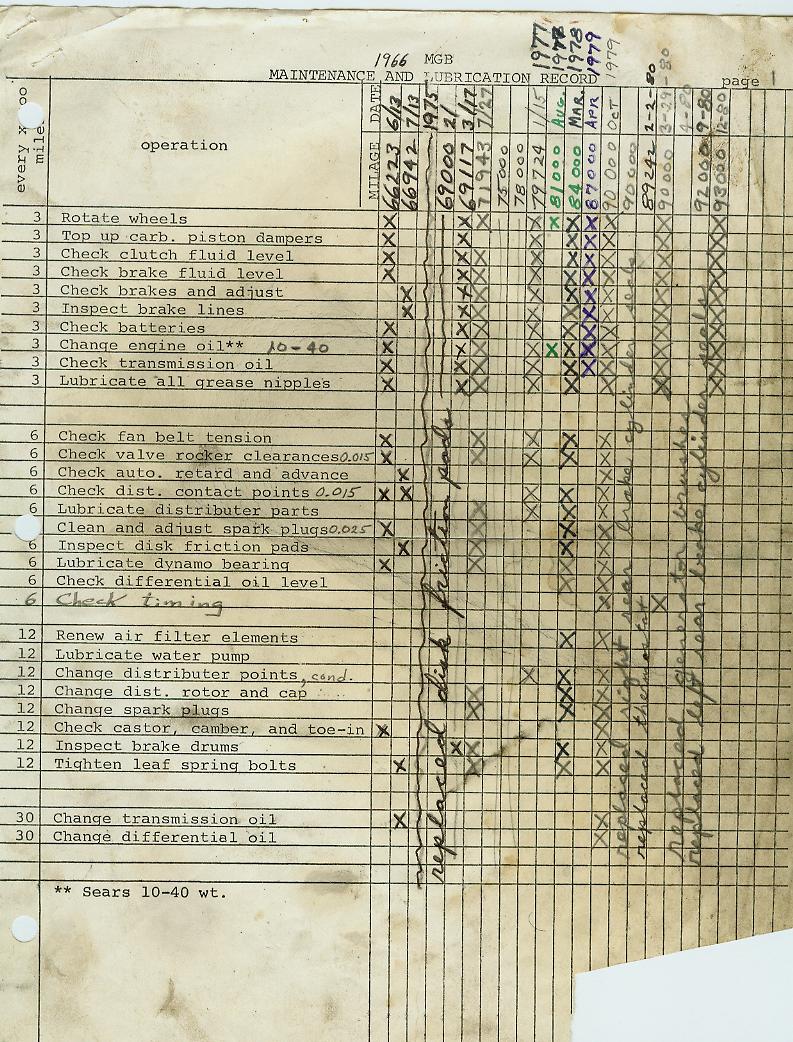 1966 MGB
MAINTENANCE AND LUBRICATION RECORD page 1
1977 1978 1978 1979 1979
every x 00 mile
operation
DATE 6/13 7/13 1975 2/ 3/17 7/27 1/15 AUG. MAR. APR OCT 2-2-80 3-29-80 4-80 9-80 12-80
MILAGE 66223 66942 69000 69117 71943 75000 78000 79724 81000 84000 87000 90000 90000 89242 90000 92000 93000
3 Rotate wheels X X X X X X X X
3 Top up carb. piston dampers
3 Check clutch fluid level
3 Check brake fluid level
3 Check brakes and adjust
3 Inspect brake lines
3 Check batteries
3 Change engine oil** 10-40
3 Check transmission oil
3 Lubricate all grease nipples
6 Check fan belt tension
6 Check valve rocker clearances 0.015
6 Check auto. retard and advance
6 Check dist. contact points 0.015
6 Lubricate distributer parts
Clean and adjust spark plugs 0.025
6 Inspect disk friction pads
6 Lubricate dynamo bearing
6 Check differential oil level
6 Check timing
12 Renew air filter elements
12 Lubricate water pump
12 Change distributer points, cond.
12 Change dist. rotor and cap
12 Change spark plugs
12 Check castor, camber, and toe-in
12 Inspect brake drums
12 Tighten leaf spring bolts
30 Change transmission oil
30 Change differential oil
replaced disk friction pads
replaced right rear brake cylinder seals
replaced thermostat
replaced generator brushes
replaced left rear brake cylinder seals
** Sears 10-40 wt.